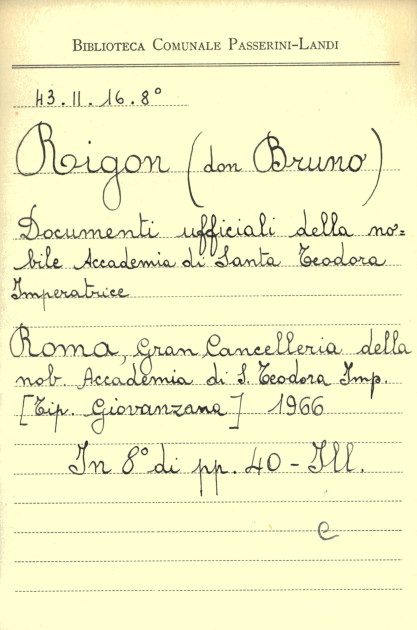 BIBLIOTECA COMUNALE PASSERINI-LANDI
43. II. 16. 8°
Rigon (don Bruno)
Documenti ufficiali della no=
bile Accademia di Santa Teodora
Imperatrice
Roma, Gran Cancelleria della
nob. Accademia di S. Teodora Imp.
[Tip. Giovanzana] 1966
In 8° di pp. 40 - Ill.
C